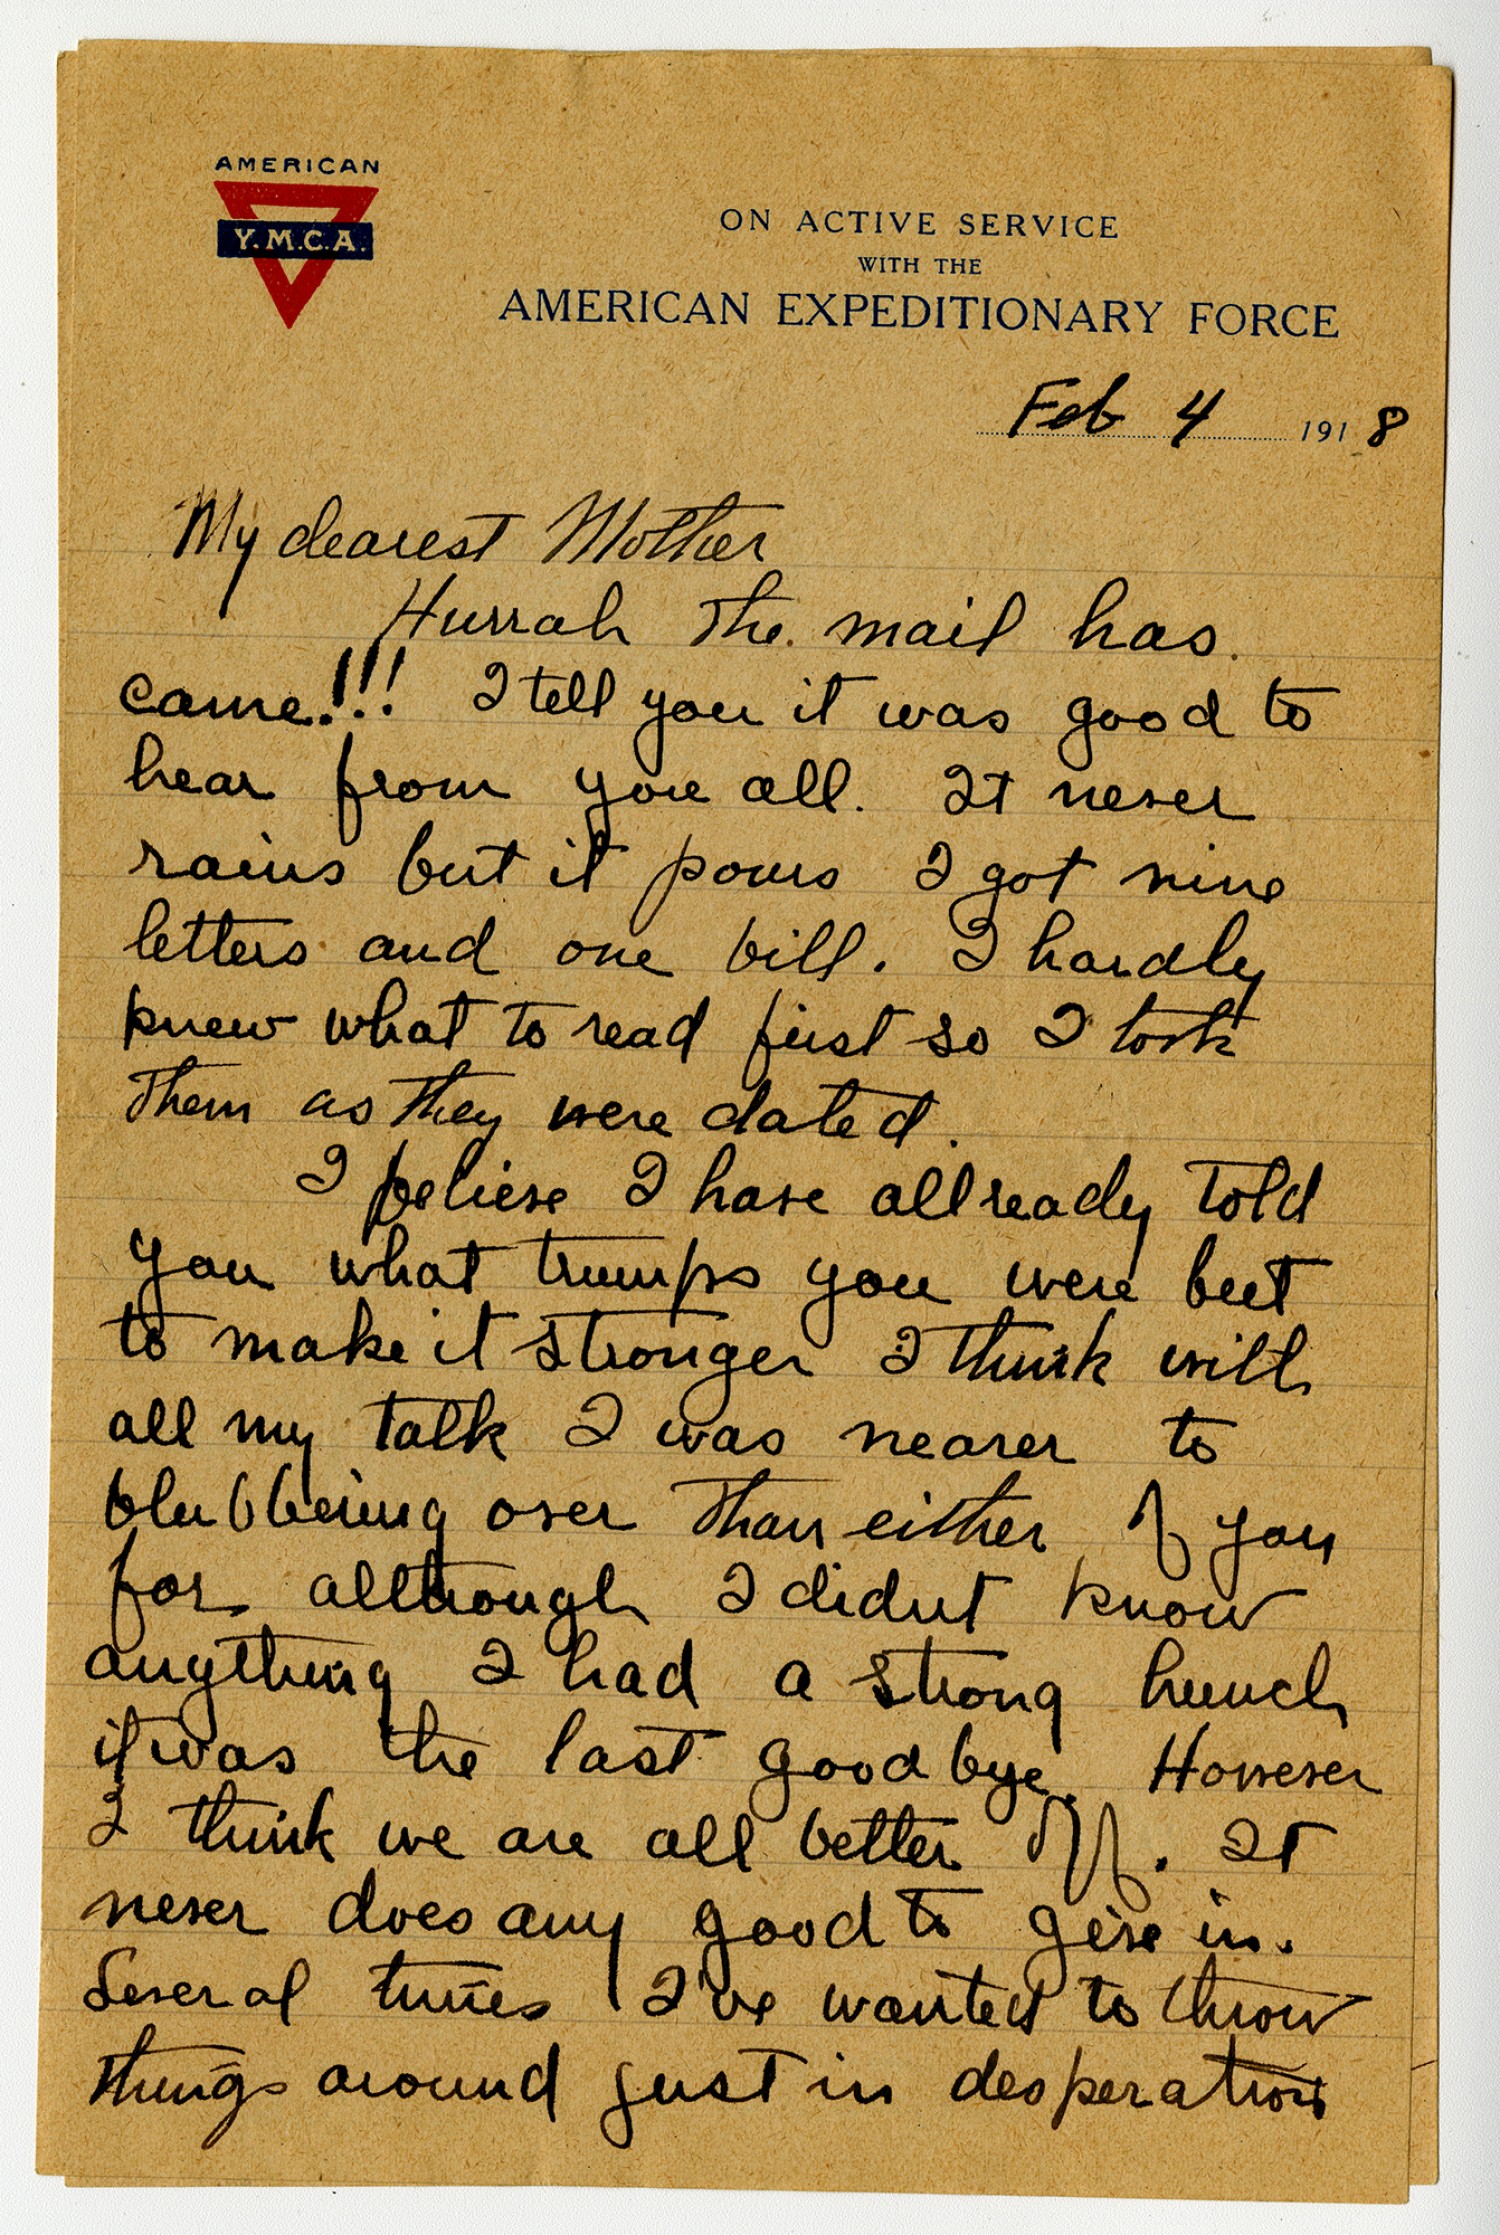 AMERICAN
Y.M.C.A.
ON ACTIVE SERVICE
WITH THE
AMERICAN EXPEDITIONARY FORCE
Feb 4 1918
My dearest Mother
Hurrah the mail has
came!!! I tell you it was good to
hear from you all. It never
rains but it pours I got nine
letters and one bill. I hardly
knew what to read first so I took
them as they were dated.
I believe I have allready told
you what trumps you were but
to make it stronger I think with
all my talk I was nearer to
blubbering over than either of you
for although I didnt know
anything I had a strong hunch
it was the last goodbye. However
I think we are all better off. It
never does any good to give in.
Several times I've wanted to throw
things around just in desperation